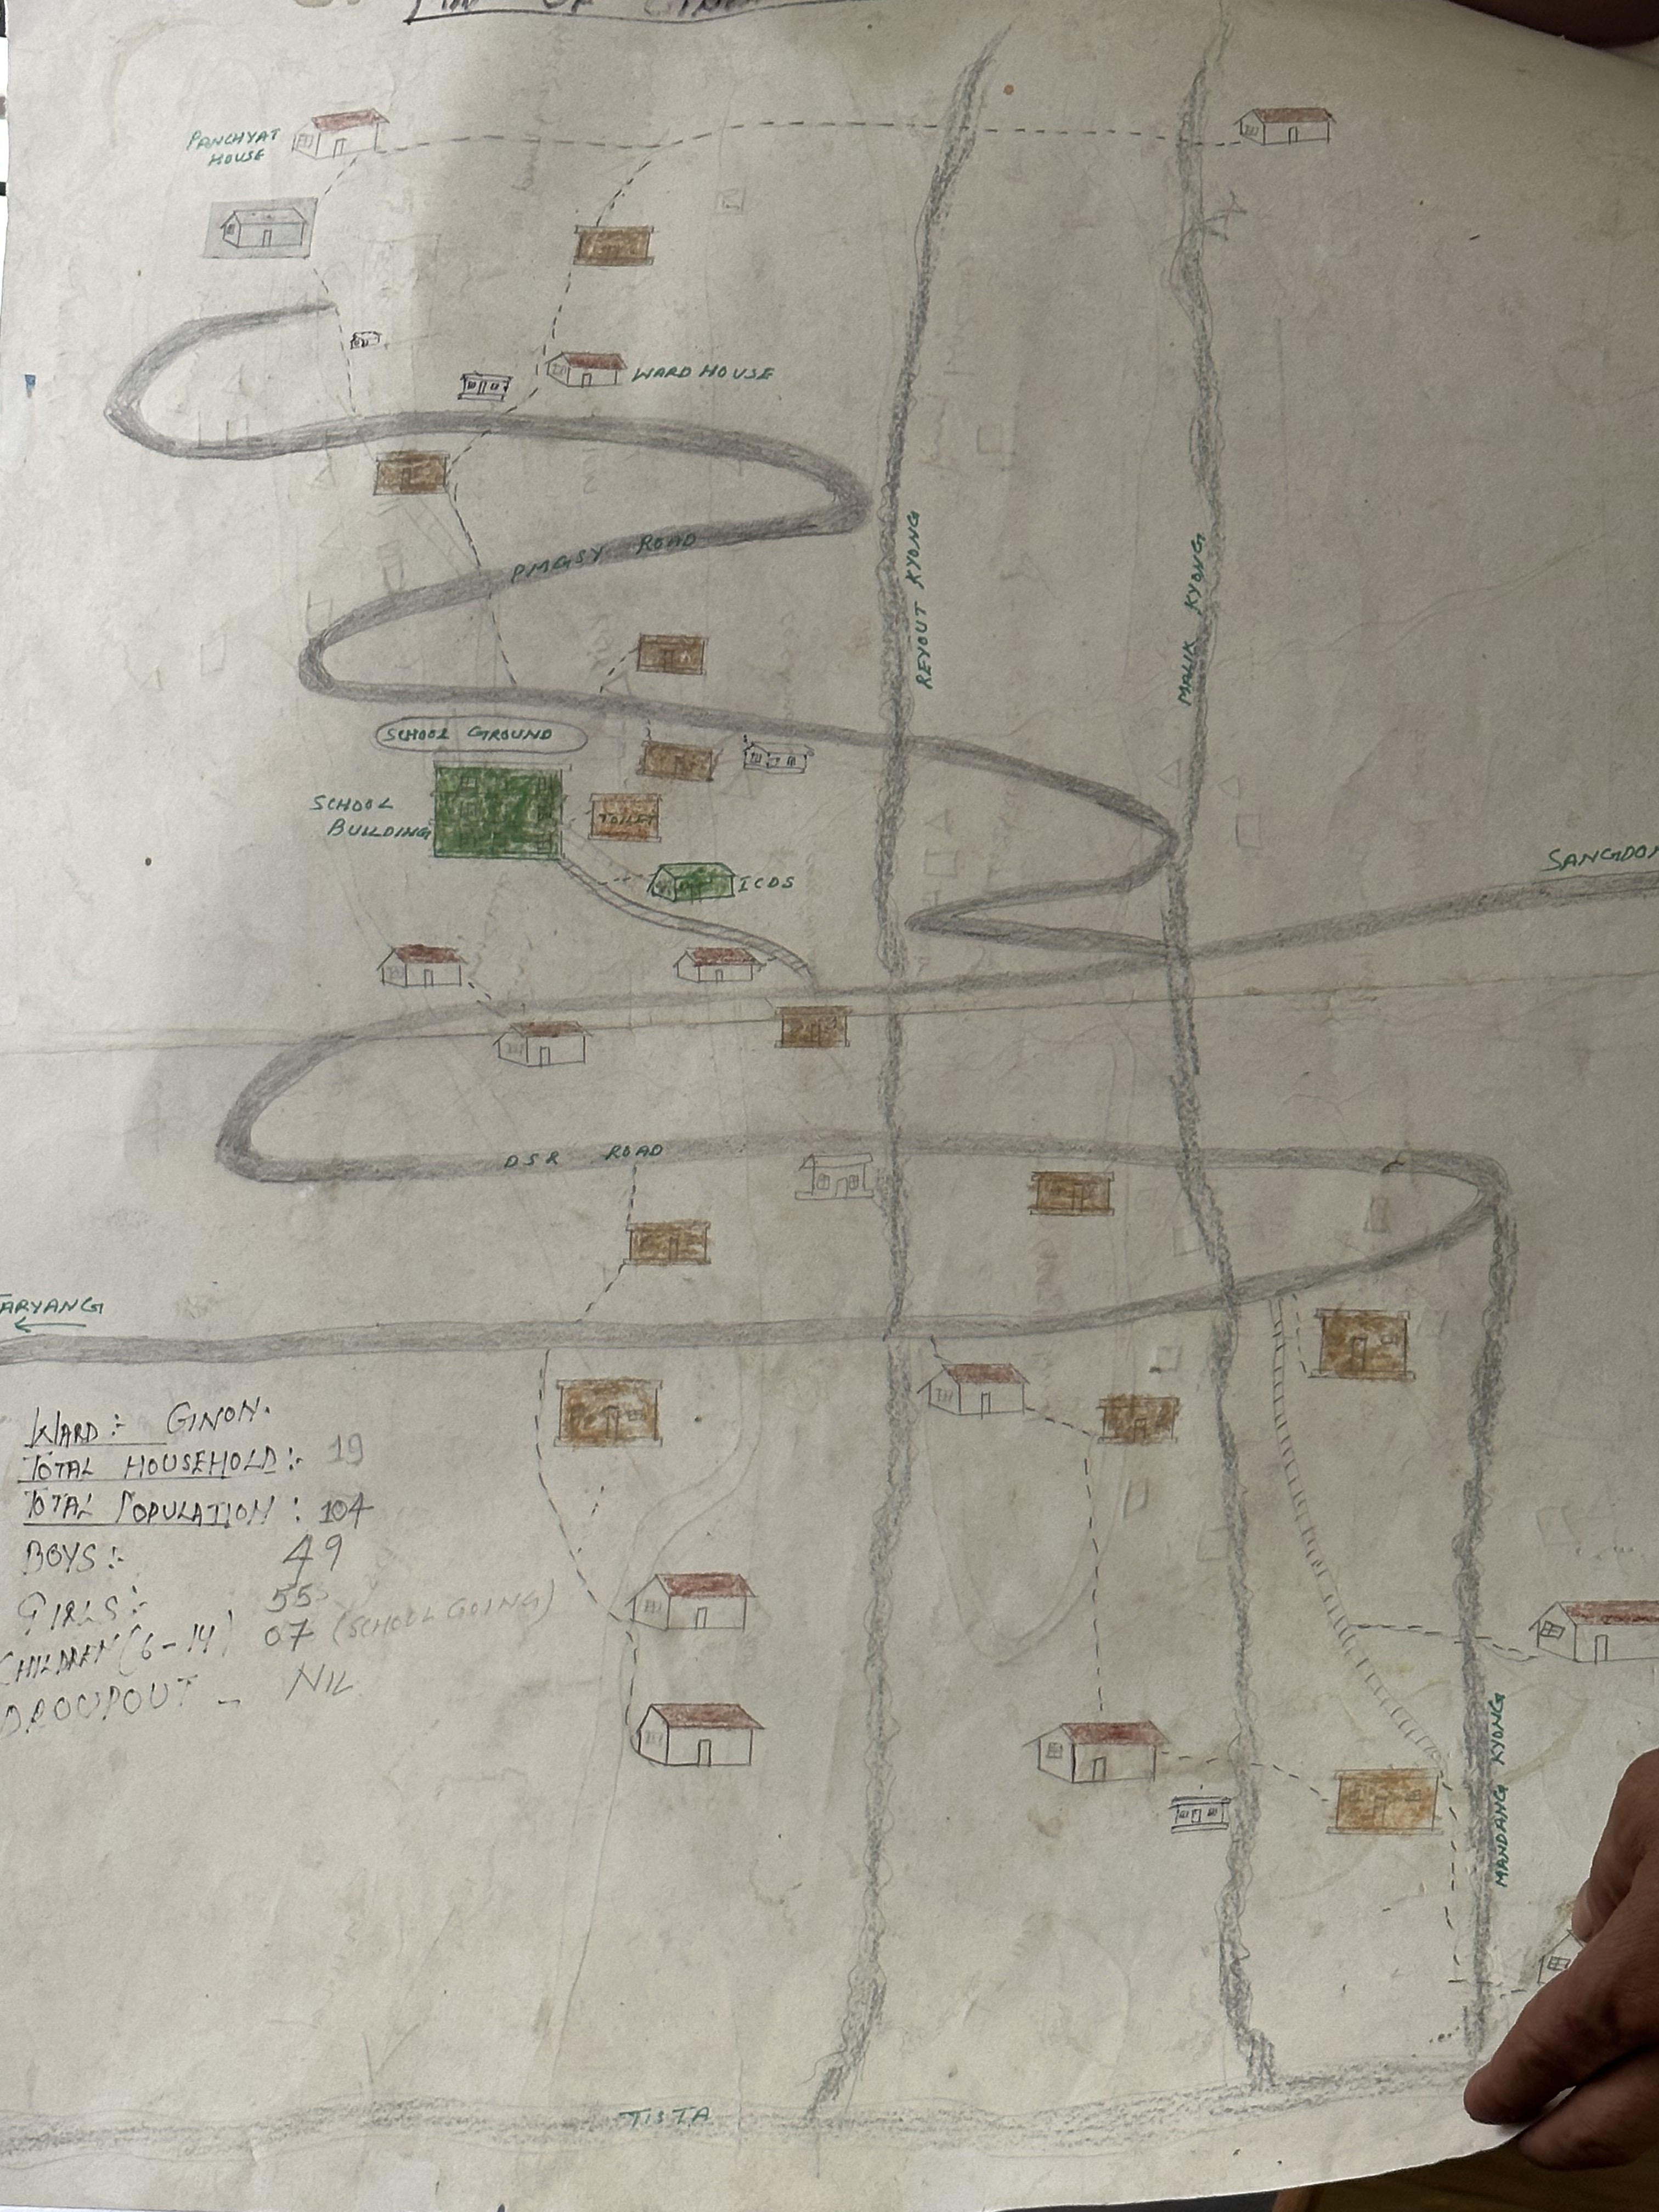 OF
PANCHYAT
HOUSE
WARD HOUSE
PMGSY ROAD
REYOUT KYONG
MALIK KYONG
SCHOOL GROUND
SCHOOL
BUILDING
TOILET
ICDS
SANGDON
DSR ROAD
TARYANG
WARD :- GINON.
TOTAL HOUSEHOLD :- 19
TOTAL POPULATION : 104
BOYS :- 49
GIRLS :- 55
CHILDREN (6-14) 07 (SCHOOL GOING)
DROUPOUT - NIL
MANDANG KYONG
TISTA